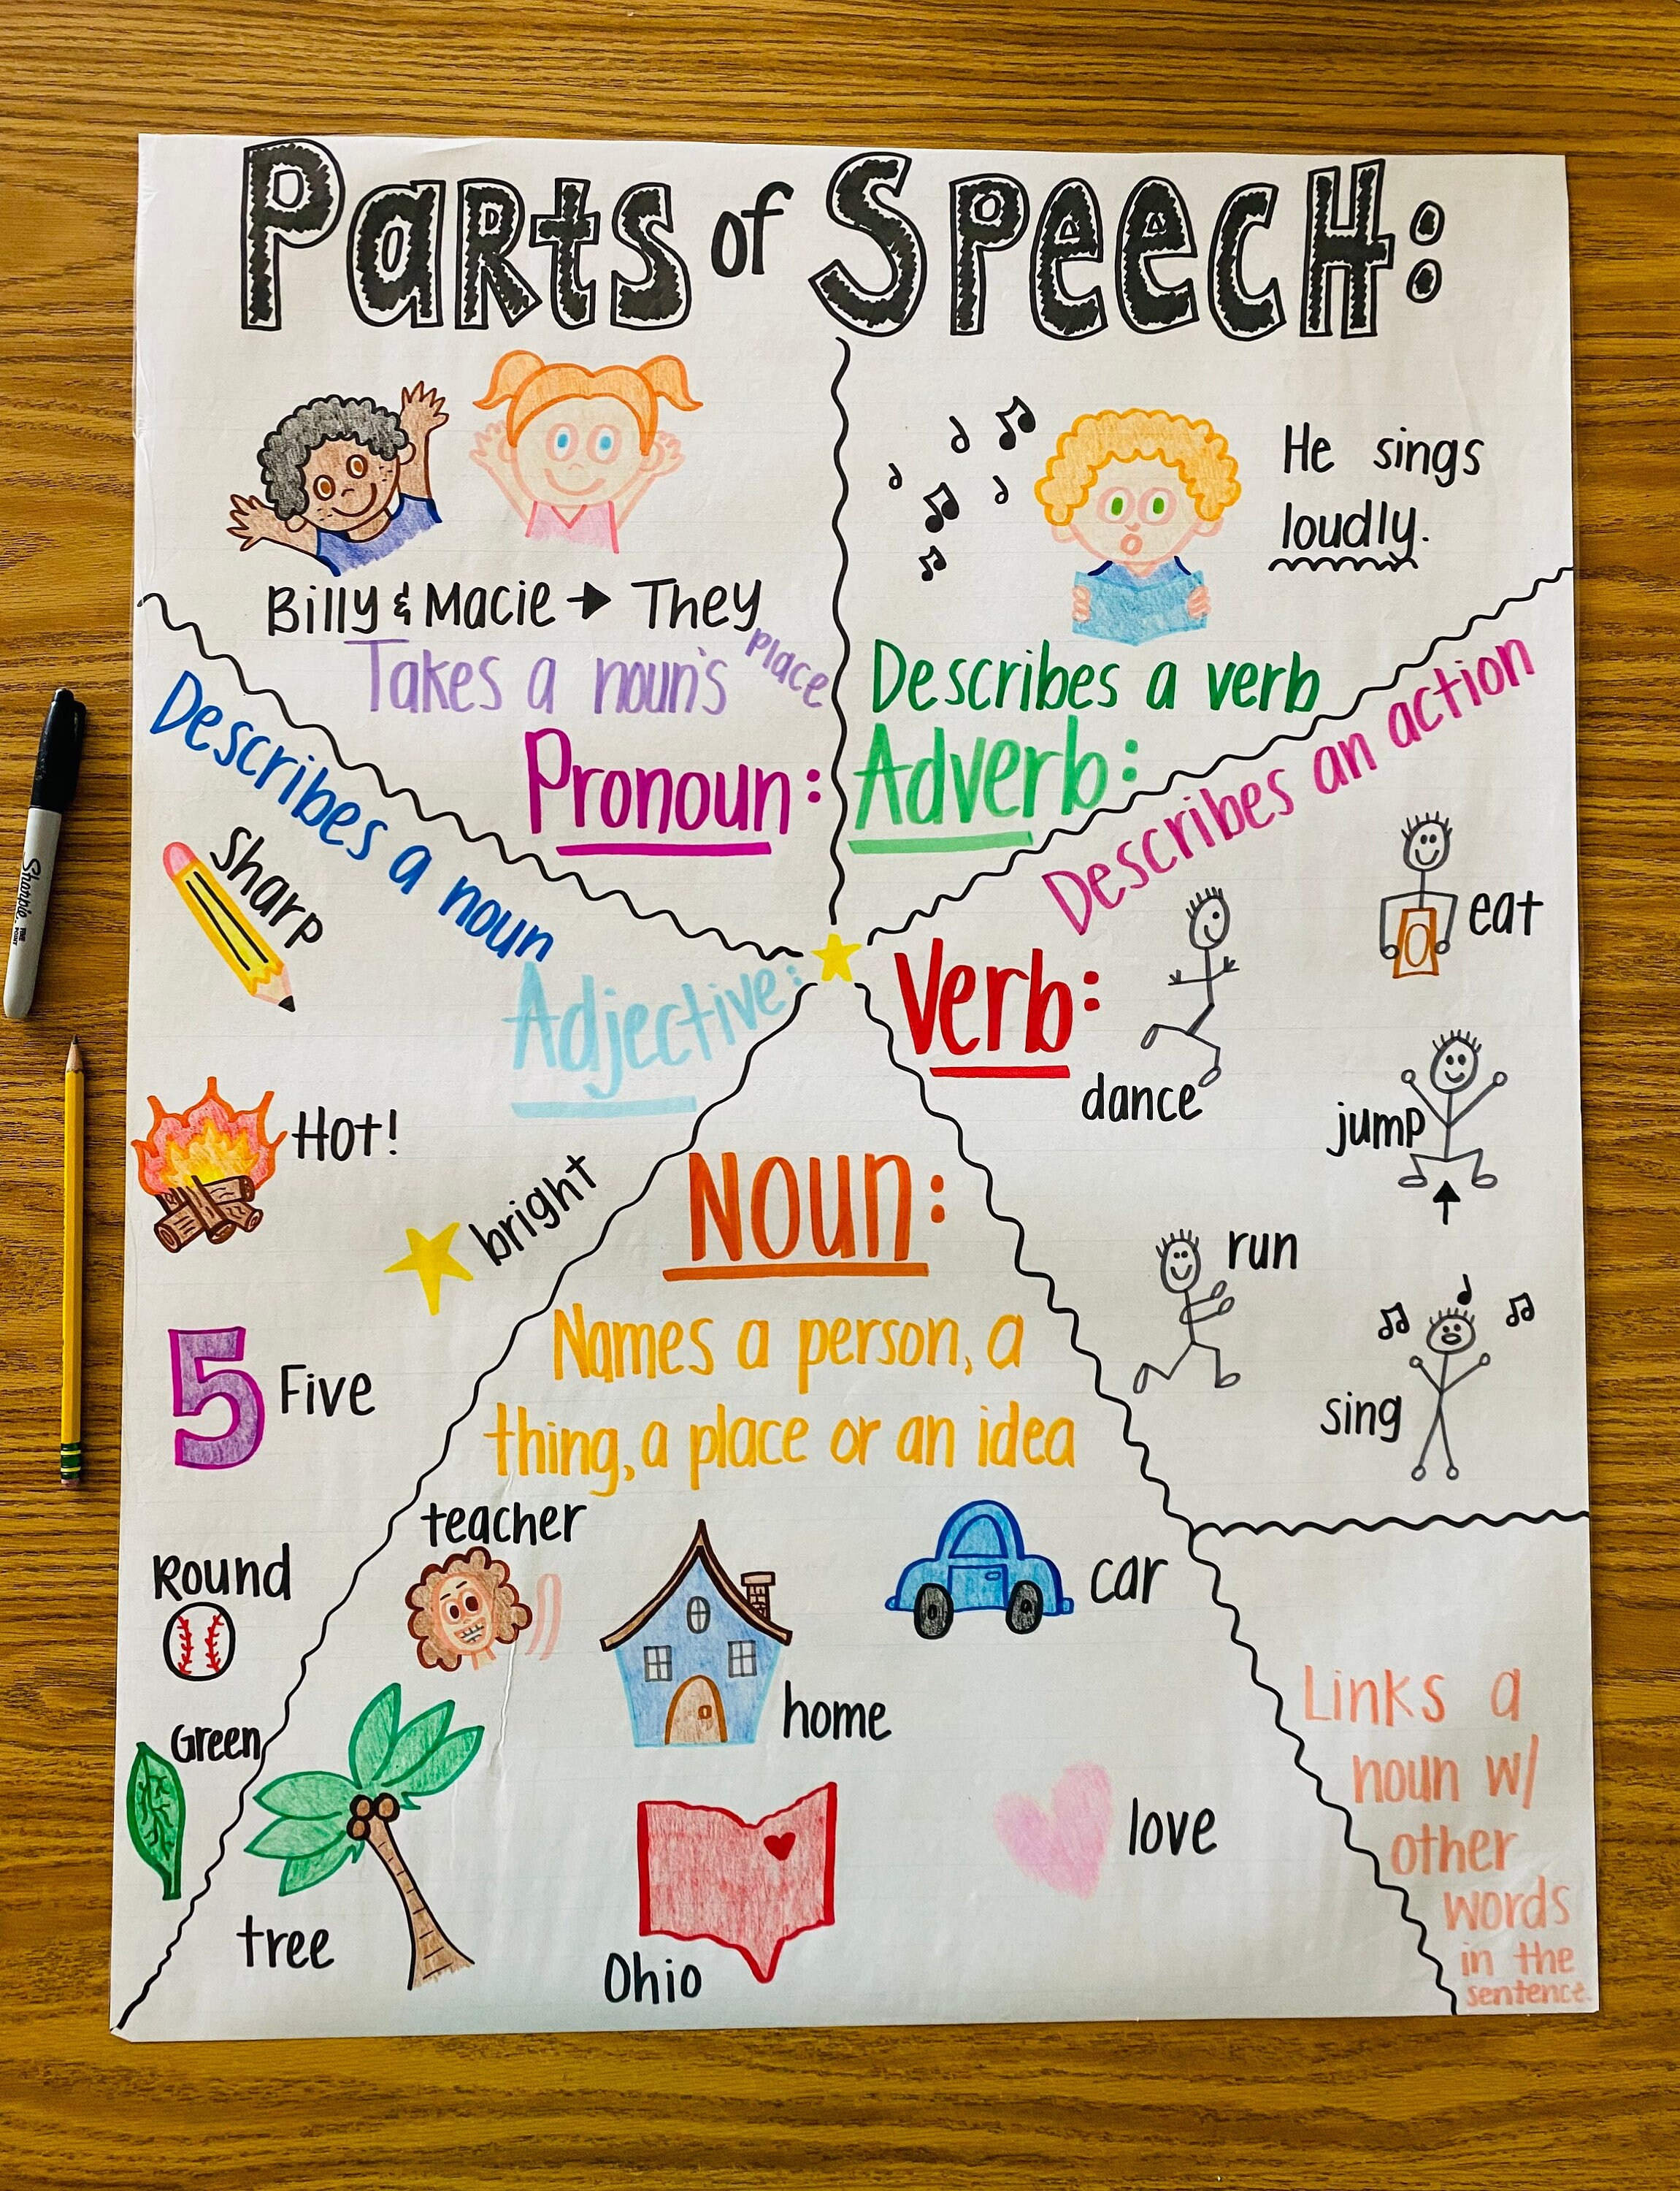 Parts of Speech:
Billy & Macie → They
Takes a noun's place
Pronoun:
He sings
loudly.
Describes a verb
Adverb:
Describes a noun
Adjective:
sharp
Hot!
bright
5 Five
Round
Green
Describes an action
Verb:
eat
dance
jump
run
sing
Noun:
Names a person, a
thing, a place or an idea
teacher
car
home
love
tree
Ohio
Links a
noun w/
other
words
in the
sentence.
Sharpie.
FINE
POINT